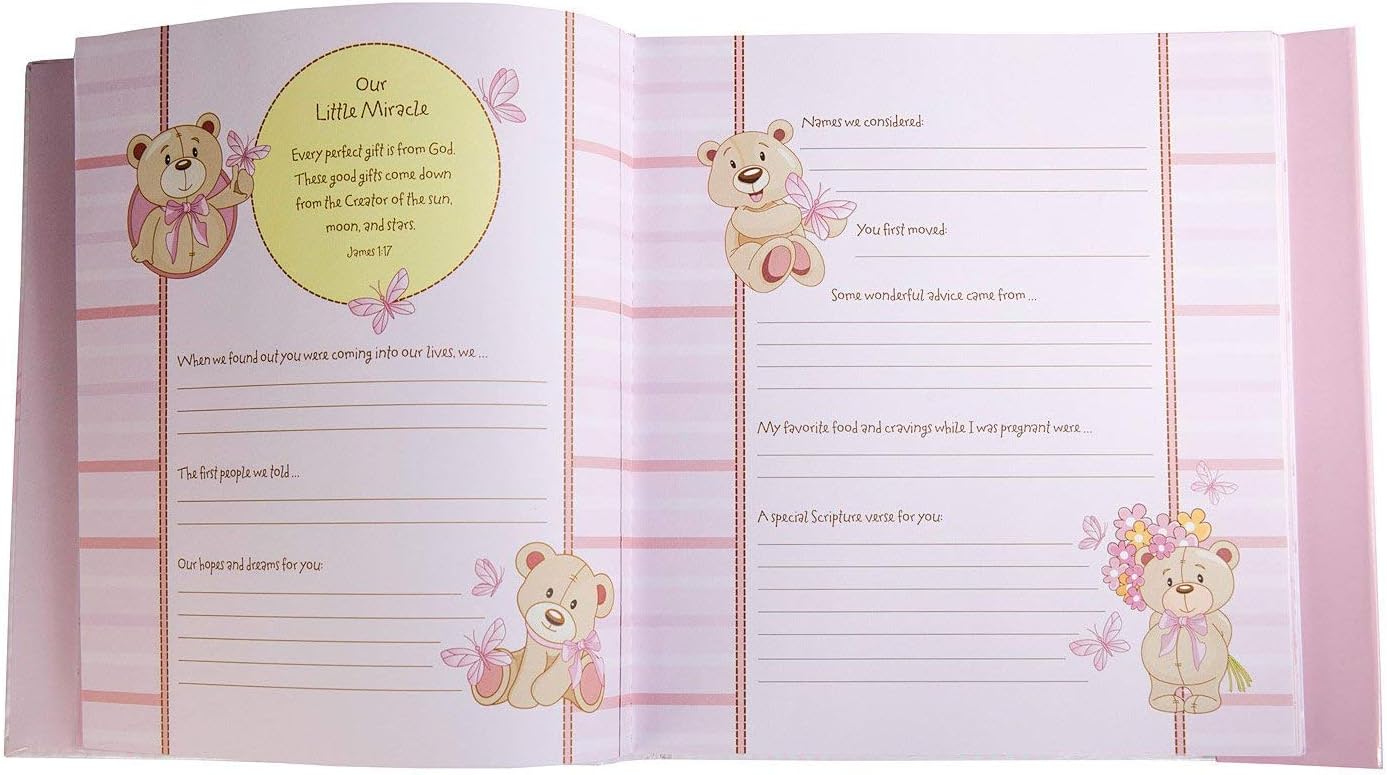 Our
Little Miracle
Every perfect gift is from God.
These good gifts come down
from the Creator of the sun,
moon, and stars.
James 1:17
When we found out you were coming into our lives, we ...
The first people we told ...
Our hopes and dreams for you:
Names we considered:
You first moved:
Some wonderful advice came from ...
My favorite food and cravings while I was pregnant were ...
A special Scripture verse for you: